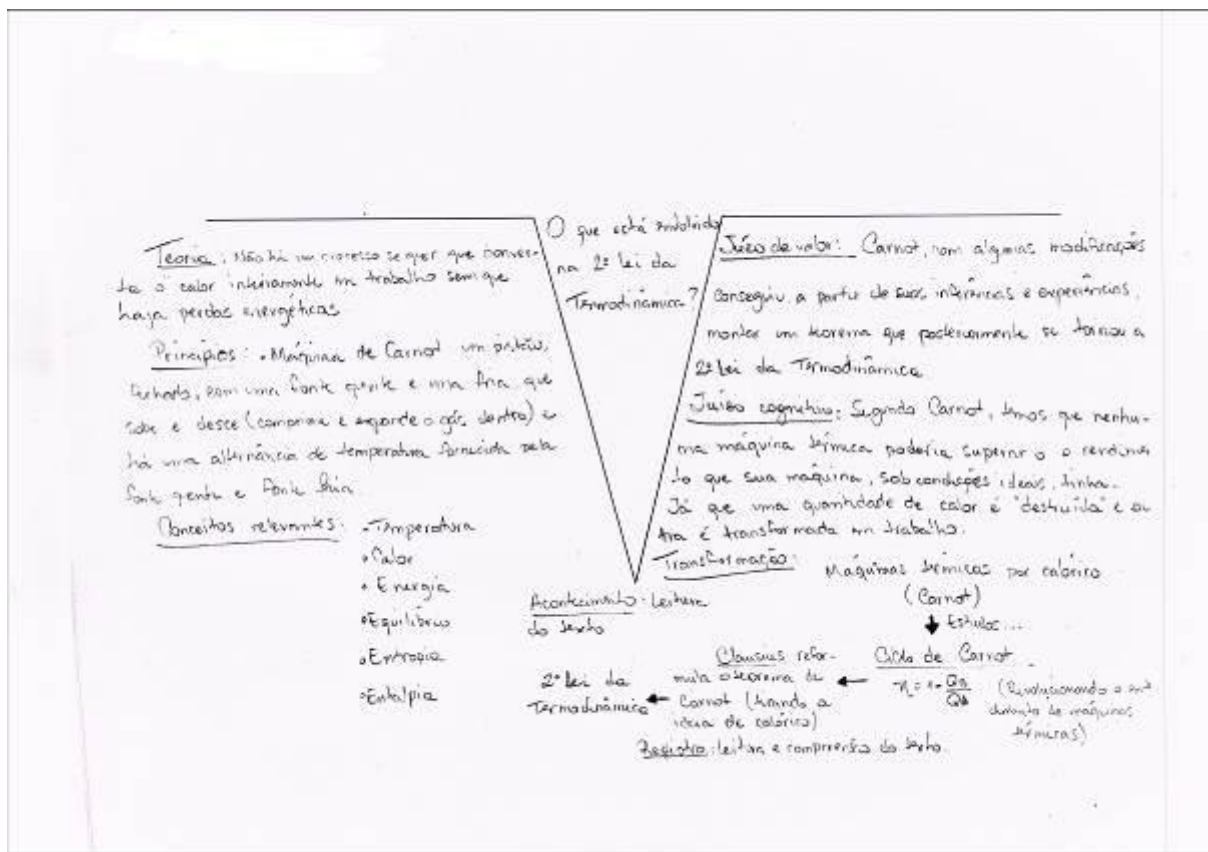 O que está envolvido
na 2ª lei da
Termodinâmica?
Teoria: Não há um processo sequer que conver-
ta o calor inteiramente em trabalho sem que
haja perdas energéticas
Princípios: • Máquina de Carnot um pistão,
fechado, com uma fonte quente e uma fria que
sobe e desce (comprime e expande o gás dentro) e
há uma alternância de temperatura fornecida pela
fonte quente e fonte fria.
Conceitos relevantes:
• Temperatura
• Calor
• Energia
• Equilíbrio
• Entropia
• Entalpia
Acontecimento: Leitura
do texto
Juízo de valor: Carnot, com algumas modificações
conseguiu, a partir de suas inferências e experiências,
montar um teorema que posteriormente se tornou a
2ª Lei da Termodinâmica
Juízo cognitivo: Segundo Carnot, temos que nenhu-
ma máquina térmica poderia superar o o rendimen
to que sua máquina, sob condições ideais, tinha.
Já que uma quantidade de calor é "destruída" e ou
tra é transformada em trabalho.
Transformação: Máquinas térmicas por calórico
(Carnot)
Estudos...
Ciclo de Carnot
(Revolucionando o ent
dimento de máquinas
térmicas)
Clausius refor-
mula o teorema de
Carnot (tirando a
ideia de calórico)
2ª Lei da
Termodinâmica
Registro: leitura e compreensão do texto.